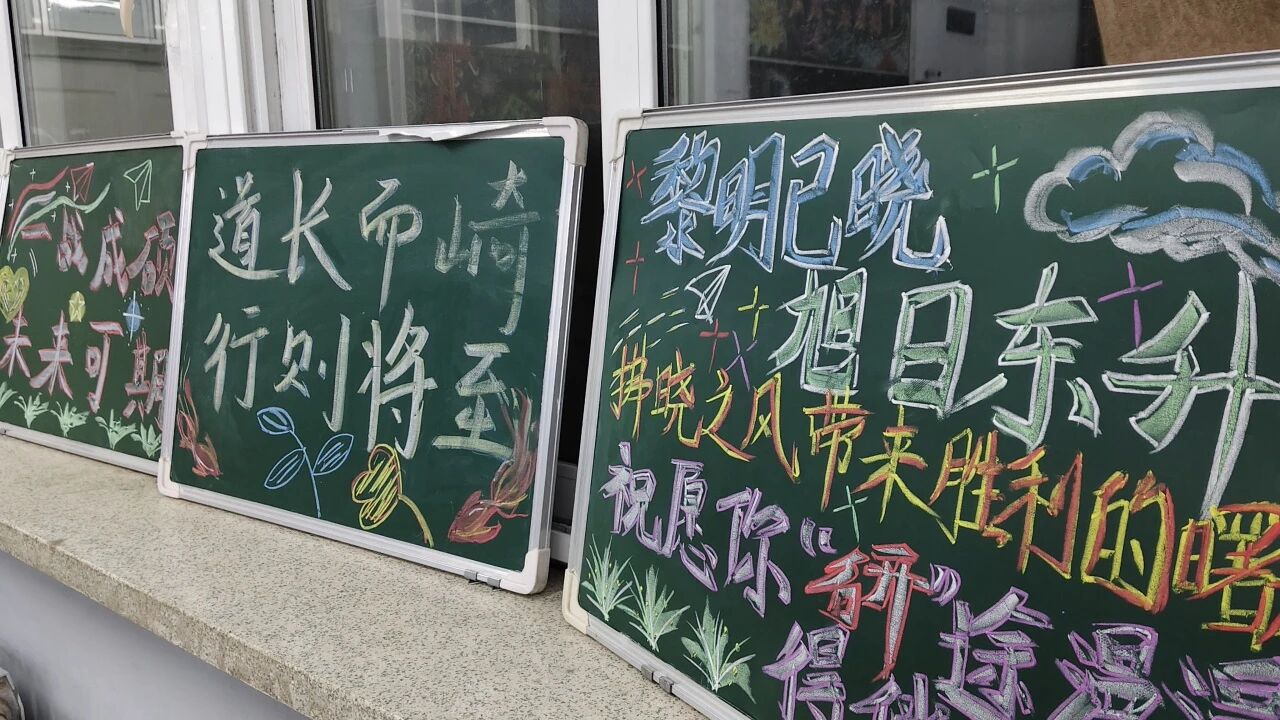 一战成硕
未来可期
道长而崎
行则将至
黎明已晓
旭日东升
拂晓之风带来胜利的曙
祝愿你“研”途漫漫
得